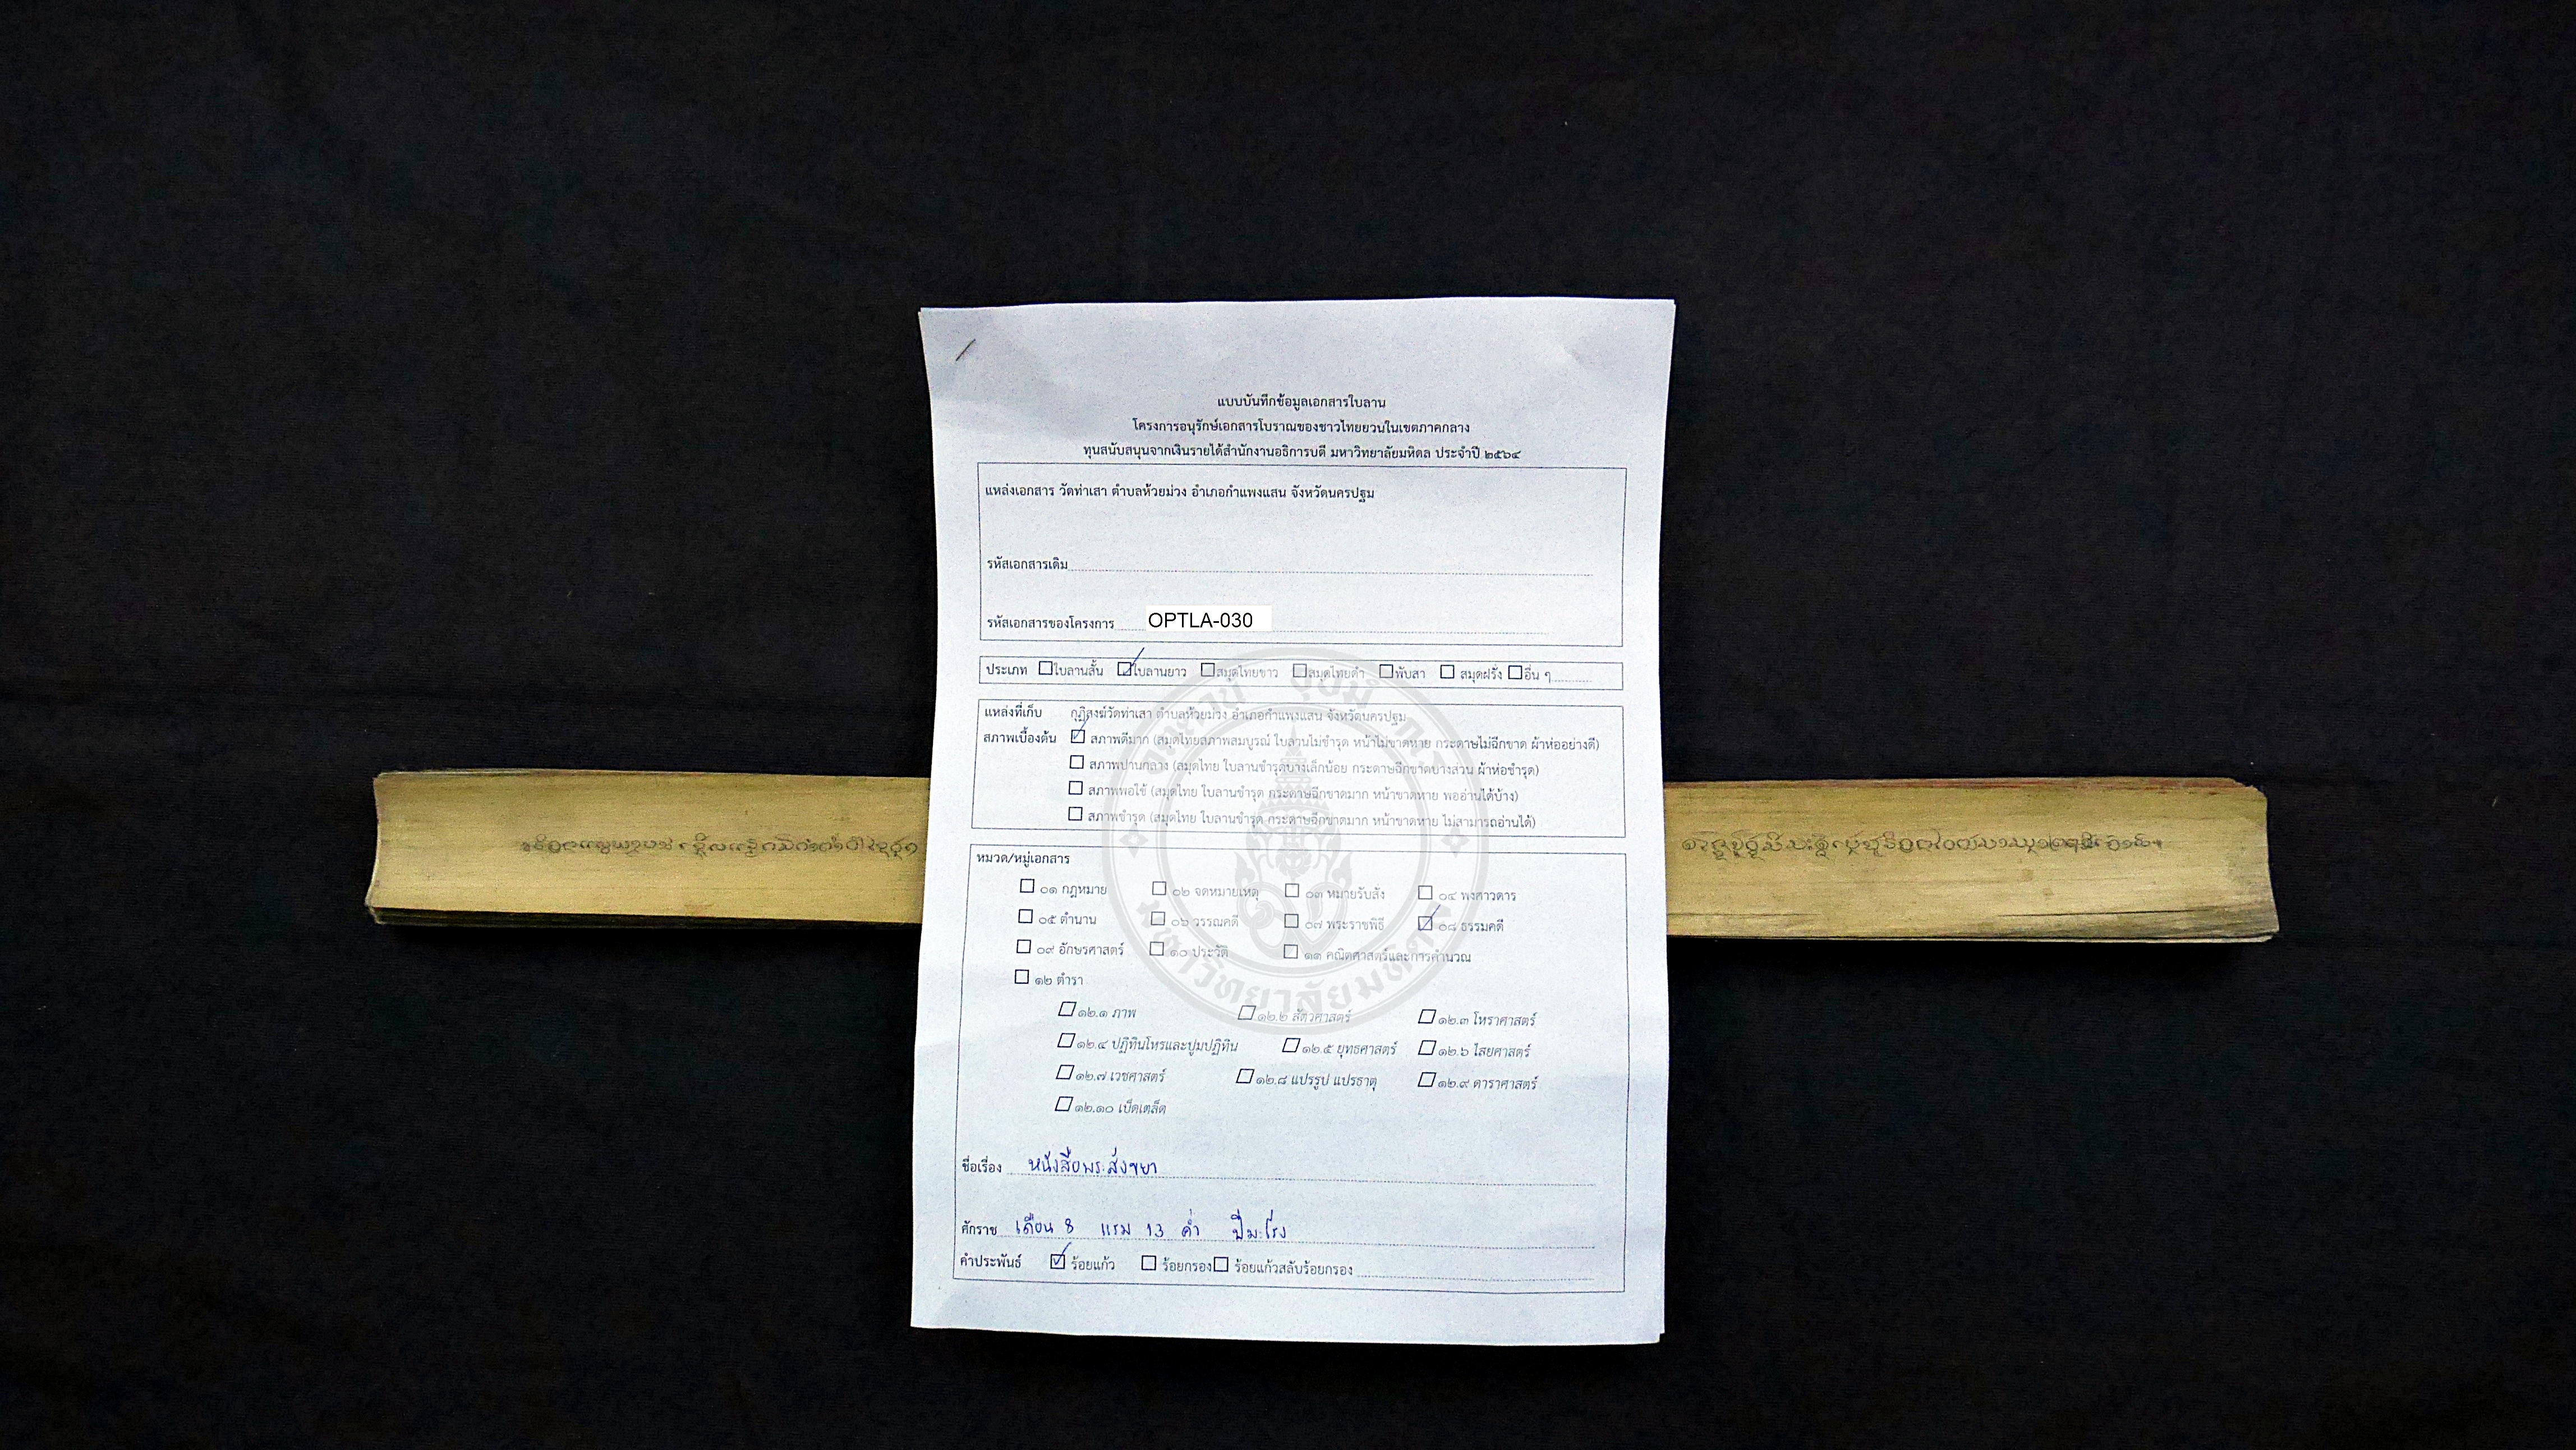 แบบบันทึกข้อมูลเอกสารใบลาน
โครงการอนุรักษ์เอกสารโบราณของชาวไทยยวนในเขตภาคกลาง
ทุนสนับสนุนจากเงินรายได้สำนักงานอธิการบดี มหาวิทยาลัยมหิดล ประจำปี ๒๕๖๔
แหล่งเอกสาร วัดท่าเสา ตำบลห้วยม่วง อำเภอกำแพงแสน จังหวัดนครปฐม
รหัสเอกสารเดิม
รหัสเอกสารของโครงการ OPTLA-030
ประเภท ใบลานสั้น ใบลานยาว สมุดไทยขาว สมุดไทยดำ พับสา สมุดฝรั่ง อื่น ๆ
แหล่งที่เก็บ กุฏิสงฆ์วัดท่าเสา ตำบลห้วยม่วง อำเภอกำแพงแสน จังหวัดนครปฐม
สภาพเบื้องต้น สภาพดีมาก (สมุดไทยสภาพสมบูรณ์ ใบลานไม่ชำรุด หน้าไม่ขาดหาย กระดาษไม่ฉีกขาด ผ้าห่ออย่างดี)
สภาพปานกลาง (สมุดไทย ใบลานชำรุดบางเล็กน้อย กระดาษฉีกขาดบางส่วน ผ้าห่อชำรุด)
สภาพพอใช้ (สมุดไทย ใบลานชำรุด กระดาษฉีกขาดมาก หน้าขาดหาย พออ่านได้บ้าง)
สภาพชำรุด (สมุดไทย ใบลานชำรุด กระดาษฉีกขาดมาก หน้าขาดหาย ไม่สามารถอ่านได้)
หมวด/หมู่เอกสาร
๐๑ กฎหมาย ๐๒ จดหมายเหตุ ๐๓ หมายรับสั่ง ๐๔ พงศาวดาร
๐๕ ตำนาน ๐๖ วรรณคดี ๐๗ พระราชพิธี ๐๘ ธรรมคดี
๐๙ อักษรศาสตร์ ๑๐ ประวัติ ๑๑ คณิตศาสตร์และการคำนวณ
๑๒ ตำรา
๑๒.๑ ภาพ ๑๒.๒ สัตวศาสตร์ ๑๒.๓ โหราศาสตร์
๑๒.๔ ปฏิทินโหรและปูมปฏิทิน ๑๒.๕ ยุทธศาสตร์ ๑๒.๖ ไสยศาสตร์
๑๒.๗ เวชศาสตร์ ๑๒.๘ แปรรูป แปรธาตุ ๑๒.๙ ดาราศาสตร์
๑๒.๑๐ เบ็ดเตล็ด
ชื่อเรื่อง หนังสือพระสังขยา
ศักราช เดือน 8 แรม 13 ค่ำ ปีมะโรง
คำประพันธ์ ร้อยแก้ว ร้อยกรอง ร้อยแก้วสลับร้อยกรอง
มหาวิทยาลัยมหิดล